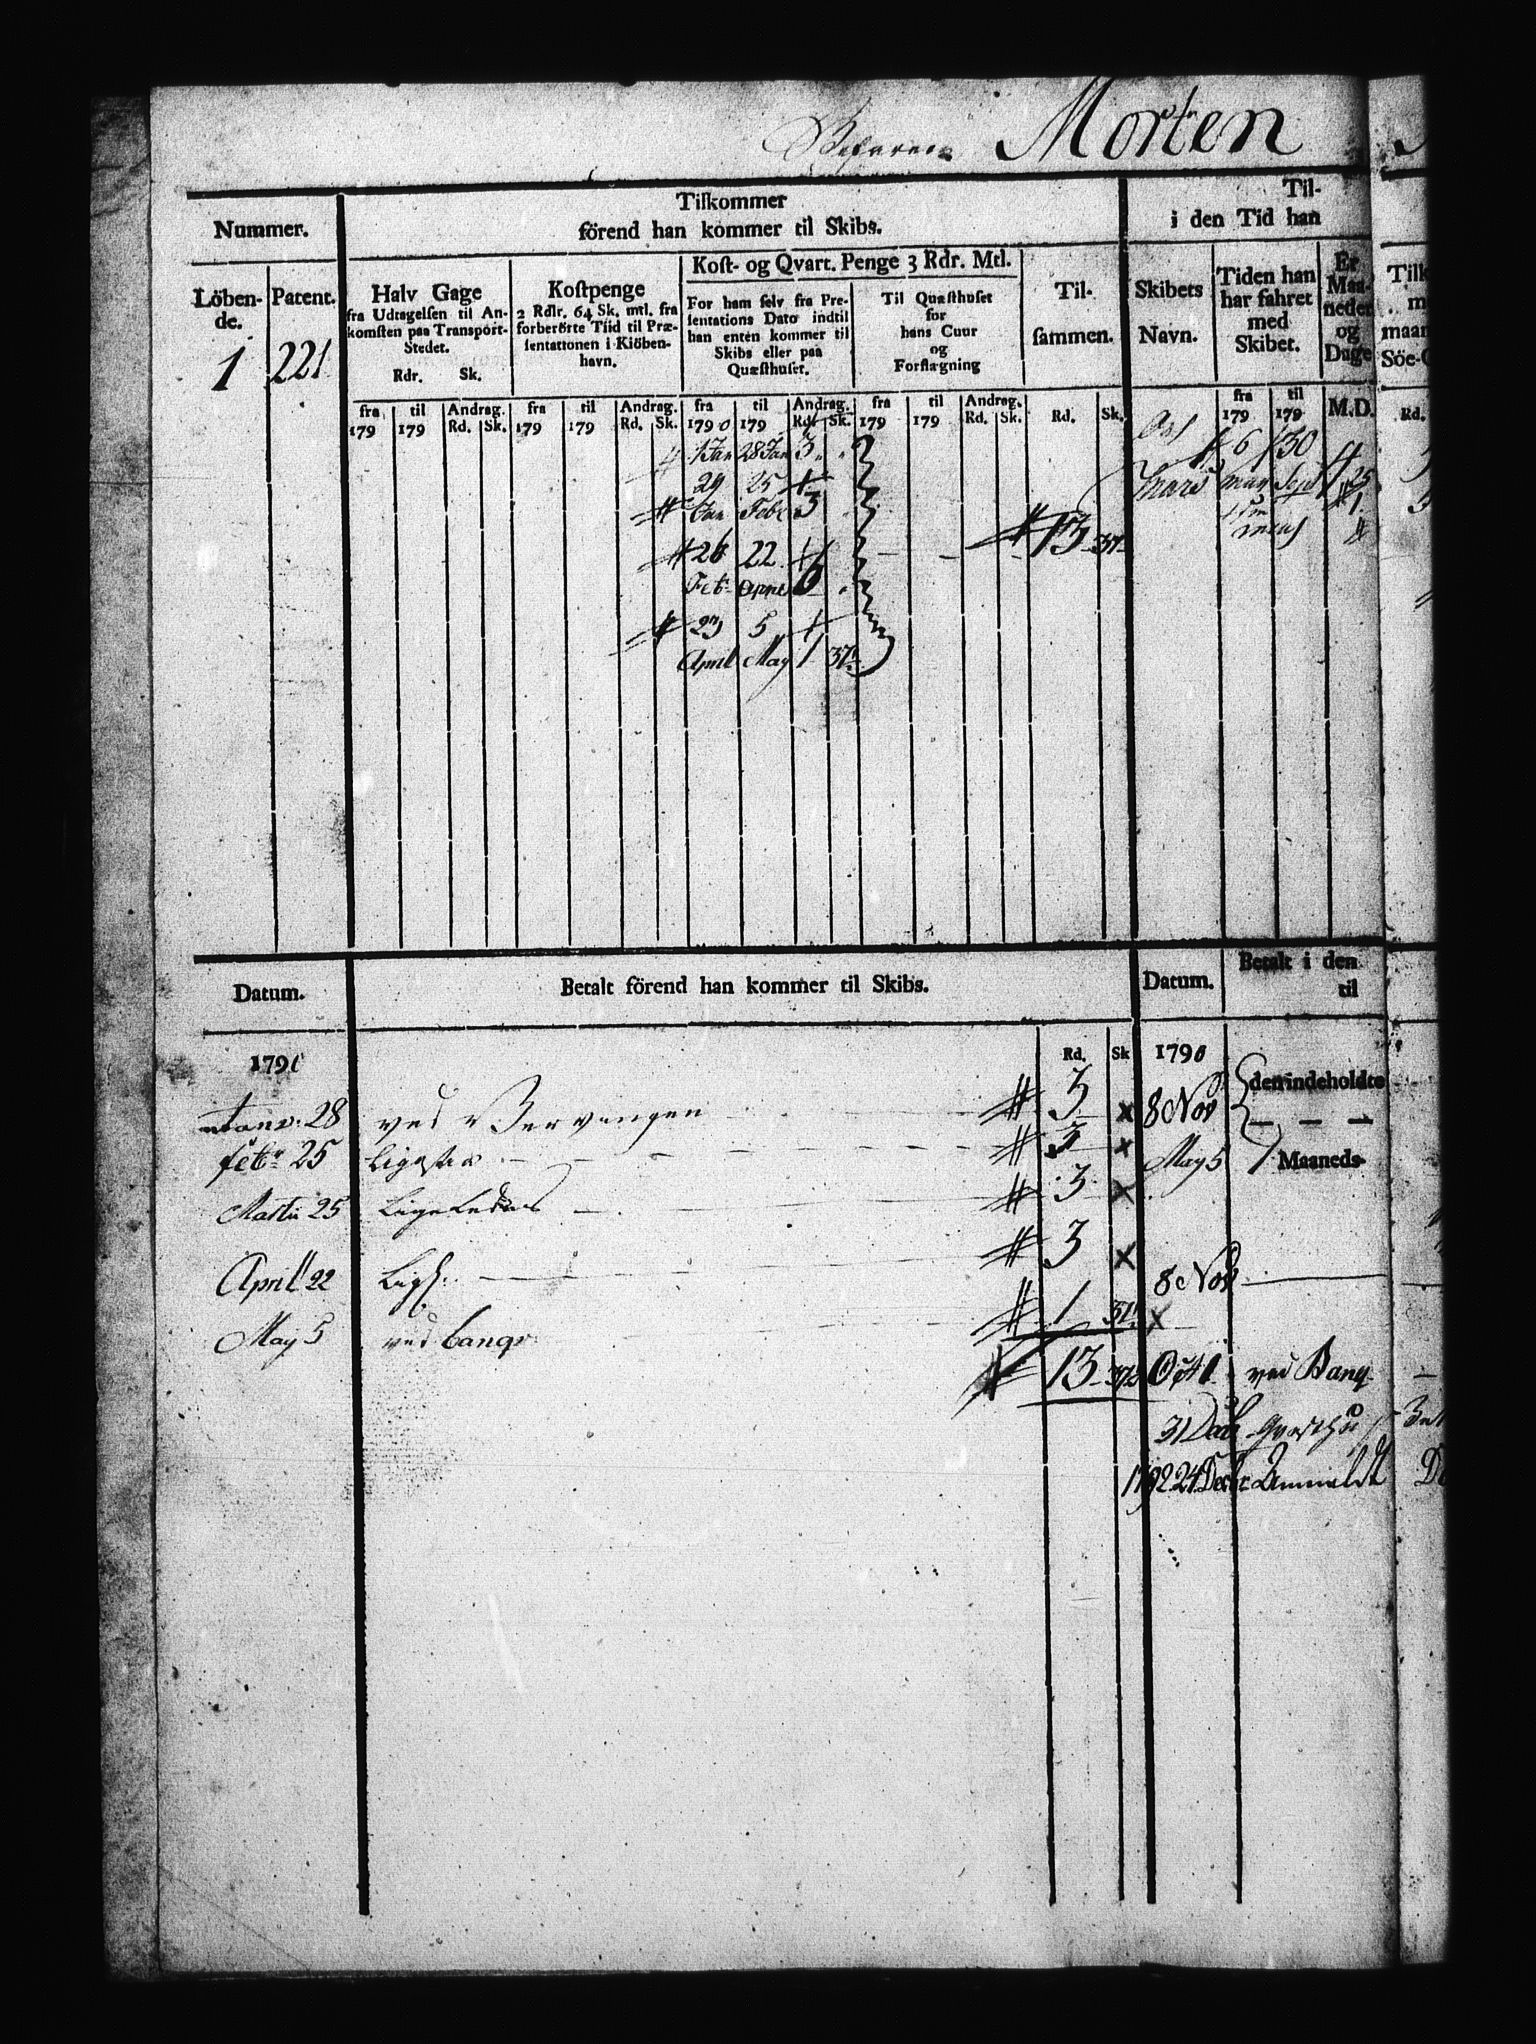 Befaren Morten
Nummer.
Löben-
de.
Patent.
1
221
Tilkommer
förend han kommer til Skibs.
Halv Gage
fra Udtagelsen til An-
komsten paa Transport-
Stedet.
Rdr. Sk.
Kostpenge
2 Rdlr. 64 Sk. mtl. fra
forberörte Tiid til Præ-
sentationen i Kiöben-
havn.
Kost- og Qvart. Penge 3 Rdr. Mtl.
For ham selv fra Pre-
sentations Dato indtil
han enten kommer til
Skibs eller paa
Quæsthuset.
Til Quæsthuset
for
hans Cuur
og
Forflægning
Til-
sammen.
Til-
i den Tid han
Skibets
Navn.
Tiden han
har fahret
med
Skibet.
Er
Maa-
neder
og
Dage
Tilk
m
maan
Söe-G
fra til Andrag. fra til Andrag. fra til Andrag. fra til Andrag. fra til
179 179 Rd. Sk. 179 179 Rd. Sk. 1790 179 Rd. Sk. 179 179 Rd. Sk. Rd. Sk. 179 179 M.D. Rd.
1 Jan 28 Jan 3 6 30 4
29 25 Mars May Sept 25
Jan Febr 3
# 13 37
# 26 22
Feb Apne 6
# 23 5
April May 1 37
Datum. Betalt förend han kommer til Skibs. Datum. Betalt i den
til
1790 Rd. Sk 1790
den indeholdte
Janv. 28 ved Mervingen # 3 x 8 Nov
Febr 25 Ligesaa # 3 x May 5 Maaneds-
Martii 25 Ligeledes # 3 x
April 22 Lig # 3 x 8 Nov
May 5 ved banqv # 1 37 x
# 13 37 Oct 1 ved Banq
31 Dec
1792 24 Decbr Anmeldt